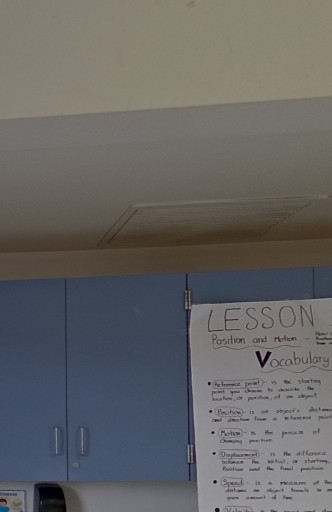 LESSON
Position and Motion -
Vocabulary
• Reference point - is the starting
point you choose to describe the
location, or position, of an object
• Position - is an object's distance
and direction from a reference point
• Motion - is the process of
changing position.
• Displacement - is the difference
between the initial, or starting,
Position and the final position.
• Speed - is a measure of the
distance an object travels in
given amount of time.